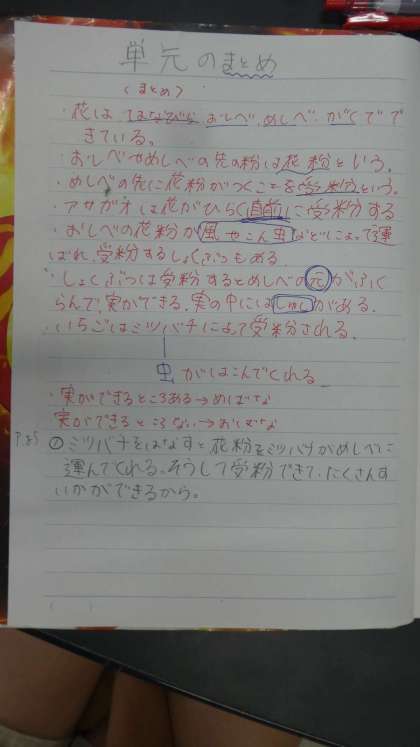 単元のまとめ
(まとめ)
・花は はなびら おしべ、めしべ、がくでで
きている。
・おしべやめしべの先の粉は花粉という。
・めしべの先に花粉がつくことを受粉という。
・アサガオは花がひらく直前に受粉する
・おしべの花粉が風やこん虫などによって運
ばれ、受粉するしょくぶつもある。
・しょくぶつは受粉するとめしべの元がふく
らんで、実ができる。実の中にはしゅしがある。
・いちごはミツバチによって受粉される。
虫がはこんでくれる
・実ができるところある→めばな
実ができるところない→おばな
P.85 ①ミツバチをはなすと花粉をミツバチがめしべに
運んでくれる。そうして受粉できて、たくさんす
いかができるから。
( )